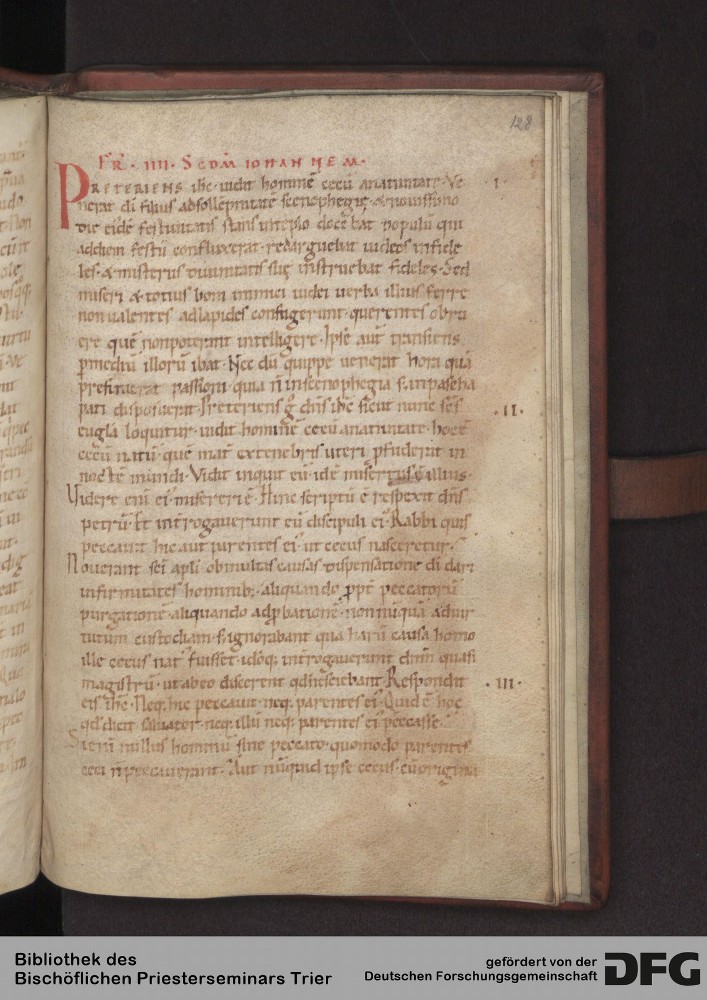 128
FR̄ · IIII · SCDM̄ IOHANNEM ·
PRETERIENS ih̄c uidit hominē cecū anatiuitate · Ve · I ·
nerat di filius adsollēpnitatē scenophegię · & nouissimo
die eidē festiuitatis stans intēplo docebat populū qui
addiem festū confluxerat · redarguebat iudeos infide
les · & misteriis diuinitatis suę instruebat fideles · Sed
miseri & totius boni inimici iudei uerba illius ferre
non ualentes adlapides confugerunt · querentes obru
ere quē nonpoterant intelligere · Ipse aut̄ transiens
p̄mediū illorū ibat · Nec dū quippe uenerat hora quā
prefinierat passioni · quia n̄ inscenophegia s; inpascha
pati disposuerat · Preteriens g̊ dn̄s ih̄c sicut nunc sēs
eugłā loquitur · uidit hominē cecū anatiuitate · hoc ē
cecū natū · quē mat̄ extenebris uteri p̄fuderat in
noctē mundi · Vidit inquit eū · id ē misertus ē illius ·
Videre enī ei᾽ misereri ē · Hinc scriptū ē respexit dn̄s · II ·
petrū · Et int̄rogauerunt eū discipuli ei᾽ · Rabbi quis
peccauit hic aut parentes ei᾽ · ut cecus nasceretur ·
Nouerant sc̄i apłi obmultas causas dispensatione di dari
infirmitates hominib; · aliquando ꝓpt̄ peccatorū
purgationē · aliquando adꝓbationē · non nūquā aduir
tutum custodiam · s; ignorabant qua harū causa homo
ille cecus nat᾽ fuisset · idoq; int̄rogauerunt dn̄m quasi
magistrū · ut abeo discerent qd̄ nesciebant · Respondit · III ·
eis ih̄c · Neq; hic peccauit neq; parentes ei᾽ · Quid ē hoc
qd̄ dicit saluator · neq; illū neq; parentes ei᾽ peccasse ·
Si enī nullus hominū sine peccato · quomodo parentes
ceci n̄ peccauerant · Aut nūquid ipse cecus · cū origina
Bibliothek des
Bischöflichen Priesterseminars Trier
gefördert von der
Deutschen Forschungsgemeinschaft
DFG